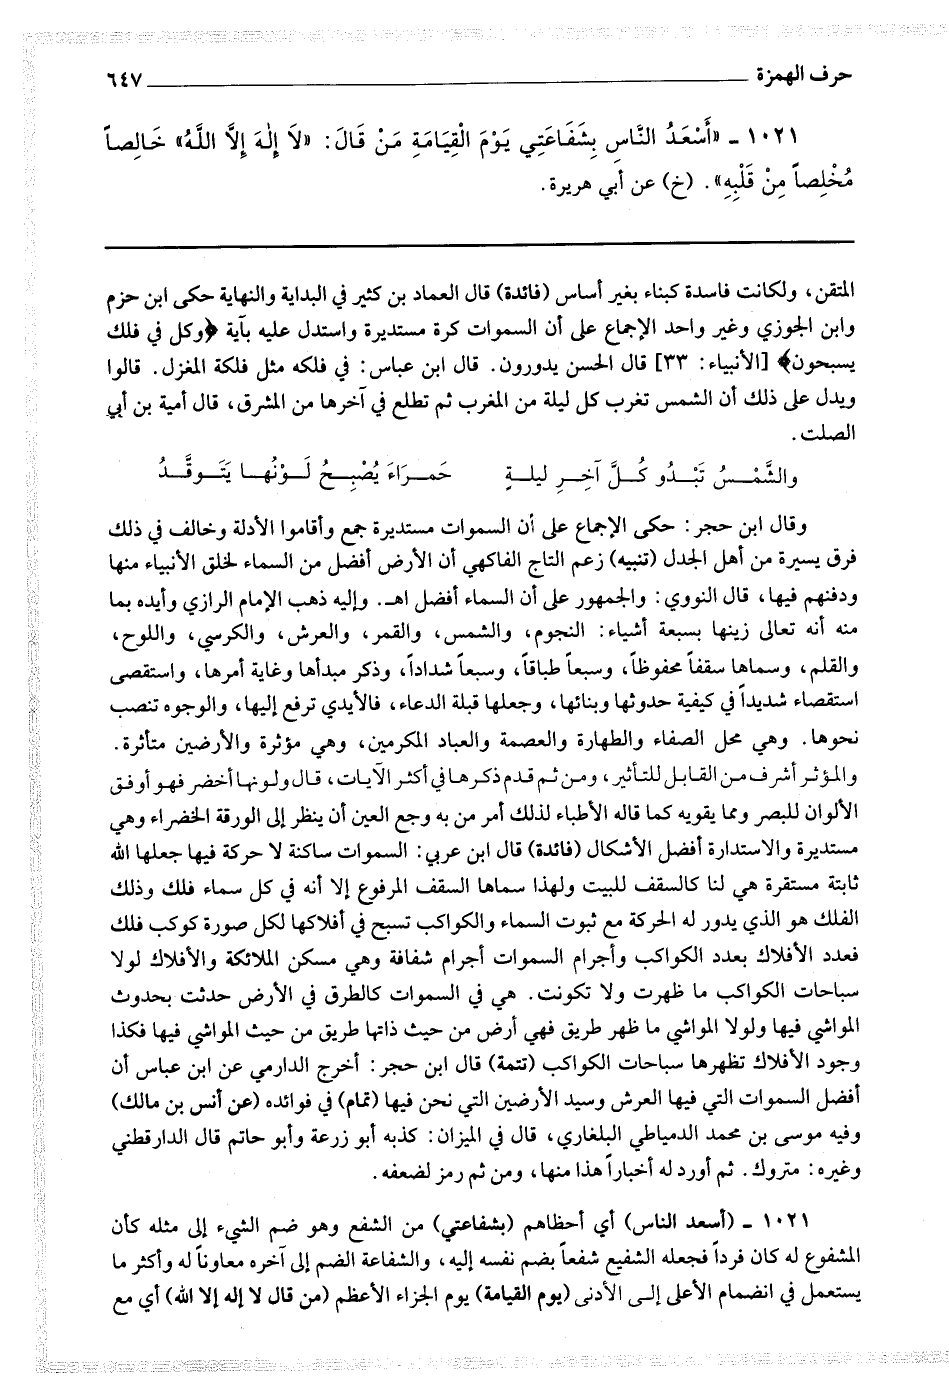 حرف الهمزة ٦٤٧
١٠٢١ ـ «أَسْعَدُ النَّاسِ بِشَفَاعَتِي يَوْمَ الْقِيَامَةِ مَنْ قَالَ: «لَا إِلٰهَ إِلَّا اللَّهُ» خَالِصاً
مُخْلِصاً مِنْ قَلْبِهِ». (خ) عن أبي هريرة.
المتقن، ولكانت فاسدة كبناء بغير أساس (فائدة) قال العماد بن كثير في البداية والنهاية حكى ابن حزم
وابن الجوزي وغير واحد الإجماع على أن السموات كرة مستديرة واستدل عليه بآية ﴿وكل في فلك
يسبحون﴾ [الأنبياء: ٣٣] قال الحسن يدورون. قال ابن عباس: في فلكه مثل فلكة المغزل. قالوا
ويدل على ذلك أن الشمس تغرب كل ليلة من المغرب ثم تطلع في آخرها من المشرق، قال أمية بن أبي
الصلت.
والشَّمْسُ تَبْدُو كُلَّ آخِرِ ليلةٍ حَمرَاءَ يُصْبِحُ لَوْنُها يَتَوقَّدُ
وقال ابن حجر: حكى الإجماع على أن السموات مستديرة جمع وأقاموا الأدلة وخالف في ذلك
فرق يسيرة من أهل الجدل (تنبيه) زعم التاج الفاكهي أن الأرض أفضل من السماء لخلق الأنبياء منها
ودفنهم فيها، قال النووي: والجمهور على أن السماء أفضل اهـ. وإليه ذهب الإمام الرازي وأيده بما
منه أنه تعالى زينها بسبعة أشياء: النجوم، والشمس، والقمر، والعرش، والكرسي، واللوح،
والقلم، وسماها سقفاً محفوظاً، وسبعاً طباقاً، وسبعاً شداداً، وذكر مبدأها وغاية أمرها، واستقصى
استقصاء شديداً في كيفية حدوثها وبنائها، وجعلها قبلة الدعاء، فالأيدي ترفع إليها، والوجوه تنصب
نحوها. وهي محل الصفاء والطهارة والعصمة والعباد المكرمين، وهي مؤثرة والأرضين متأثرة.
والمؤثر أشرف من القابل للتأثير، ومن ثم قدم ذكرها في أكثر الآيات، قال ولونها أخضر فهو أوفق
الألوان للبصر ومما يقويه كما قاله الأطباء لذلك أمر من به وجع العين أن ينظر إلى الورقة الخضراء وهي
مستديرة والاستدارة أفضل الأشكال (فائدة) قال ابن عربي: السموات ساكنة لا حركة فيها جعلها الله
ثابتة مستقرة هي لنا كالسقف للبيت ولهذا سماها السقف المرفوع إلا أنه في كل سماء فلك وذلك
الفلك هو الذي يدور له الحركة مع ثبوت السماء والكواكب تسبح في أفلاكها لكل صورة كوكب فلك
فعدد الأفلاك بعدد الكواكب وأجرام السموات أجرام شفافة وهي مسكن الملائكة والأفلاك لولا
سباحات الكواكب ما ظهرت ولا تكونت. هي في السموات كالطرق في الأرض حدثت بحدوث
المواشي فيها ولولا المواشي ما ظهر طريق فهي أرض من حيث ذاتها طريق من حيث المواشي فيها فكذا
وجود الأفلاك تظهرها سباحات الكواكب (تتمة) قال ابن حجر: أخرج الدارمي عن ابن عباس أن
أفضل السموات التي فيها العرش وسيد الأرضين التي نحن فيها (تمام) في فوائده (عن أنس بن مالك)
وفيه موسى بن محمد الدمياطي البلغاري، قال في الميزان: كذبه أبو زرعة وأبو حاتم قال الدارقطني
وغيره: متروك. ثم أورد له أخباراً هذا منها، ومن ثم رمز لضعفه.
١٠٢١ ـ (أسعد الناس) أي أحظاهم (بشفاعتي) من الشفع وهو ضم الشيء إلى مثله كأن
المشفوع له كان فرداً فجعله الشفيع شفعاً بضم نفسه إليه، والشفاعة الضم إلى آخره معاوناً له وأكثر ما
يستعمل في انضمام الأعلى إلى الأدنى (يوم القيامة) يوم الجزاء الأعظم (من قال لا إله إلا الله) أي مع